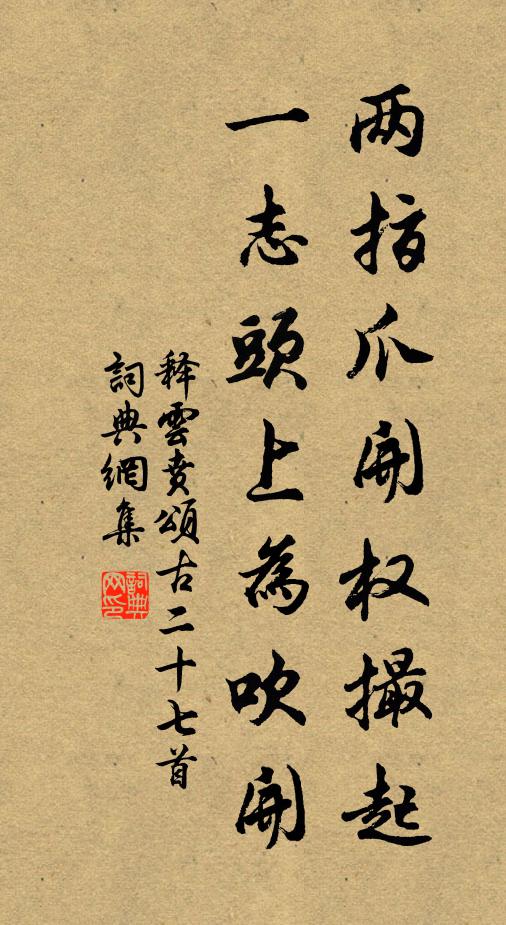 两指爪開权撮起
一志頭上為吹開
释雲賁頌古二十七首
詞典網集
詞典网印